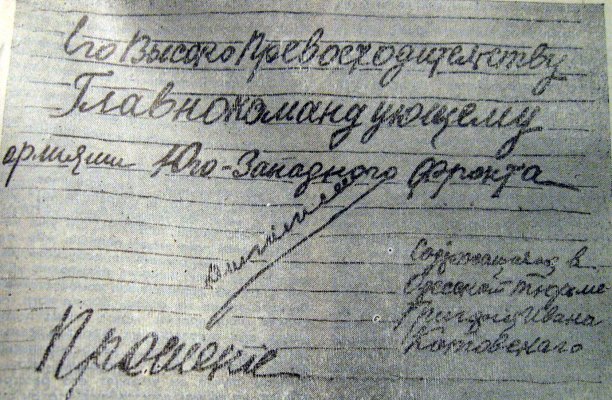 Его ВысокоПревосходительству
Главнокомандующему
армиями Юго-Западного фронта
в
Одесской тюрьме
Григория Ивана
Котовскаго
Прошение